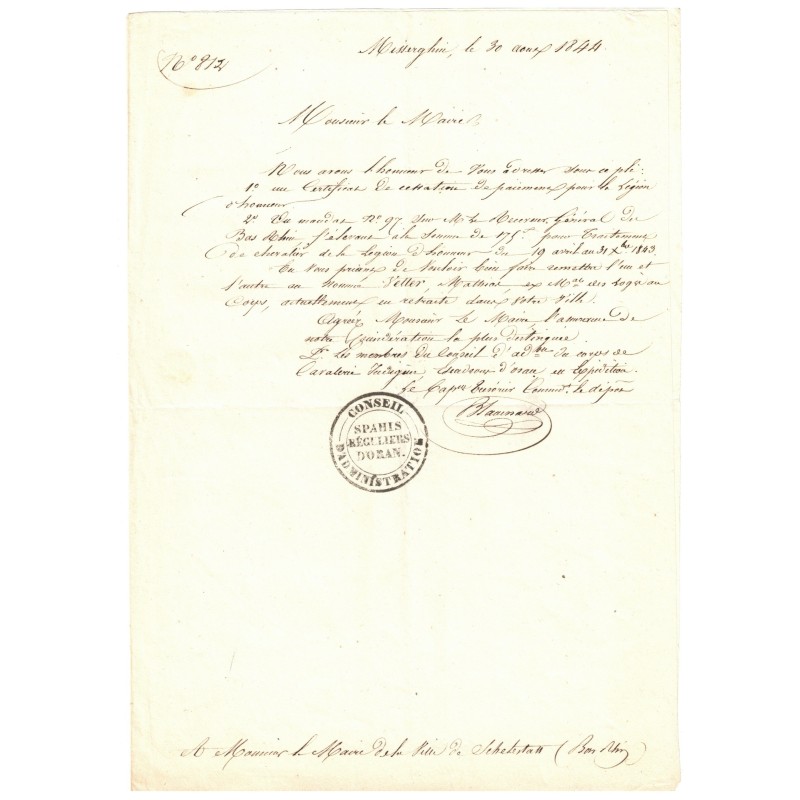 Misserghin, le 30 aoust 1844.
N° 812
Monsieur le Maire
Nous avons l'honneur de Vous adresser sous ce pli:
1° un Certificat de cessation de paiement pour la Légion
d'honneur
2° Un mandat N° 97 sur Mr le Receveur Général du
Bas Rhin s'élevant à la somme de 175f pour traitement
de chevalier de la Légion d'honneur du 19 avril au 31 Xbre 1843.
En Vous priant de Vouloir bien faire remettre l'un et
l'autre au nommé Vetter, Mathias, ex Mal des Logis au
Corps, actuellement en retraite dans Votre Ville.
Agréez Monsieur Le Maire l'assurance de
notre Considération la plus distinguée
Pr Les membres du Conseil d'adon du corps de
Cavalerie Indigène d'oran en Expédition.
Le Capne Trésorier Commdt le dépôt
CONSEIL
SPAHIS
RÉGULIERS
D'ORAN.
D'ADMINISTRATION
A Monsieur le Maire de la Ville de Schelestatt (Bas Rhin)